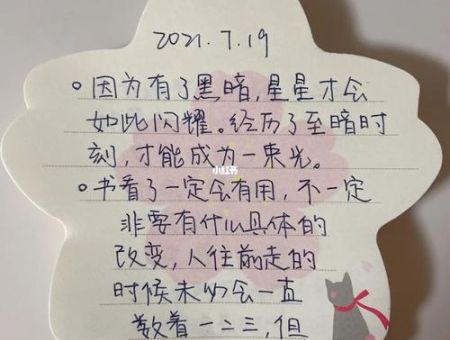 2021.7.19
。因为有了黑暗,星星才会
如此闪耀。经历了至暗时
刻,才能成为一束光。
小红书
。书看了一定会有用,不一定
非要有什么具体的
改变,人往前走的
时候未必会一直
数着一二三,但